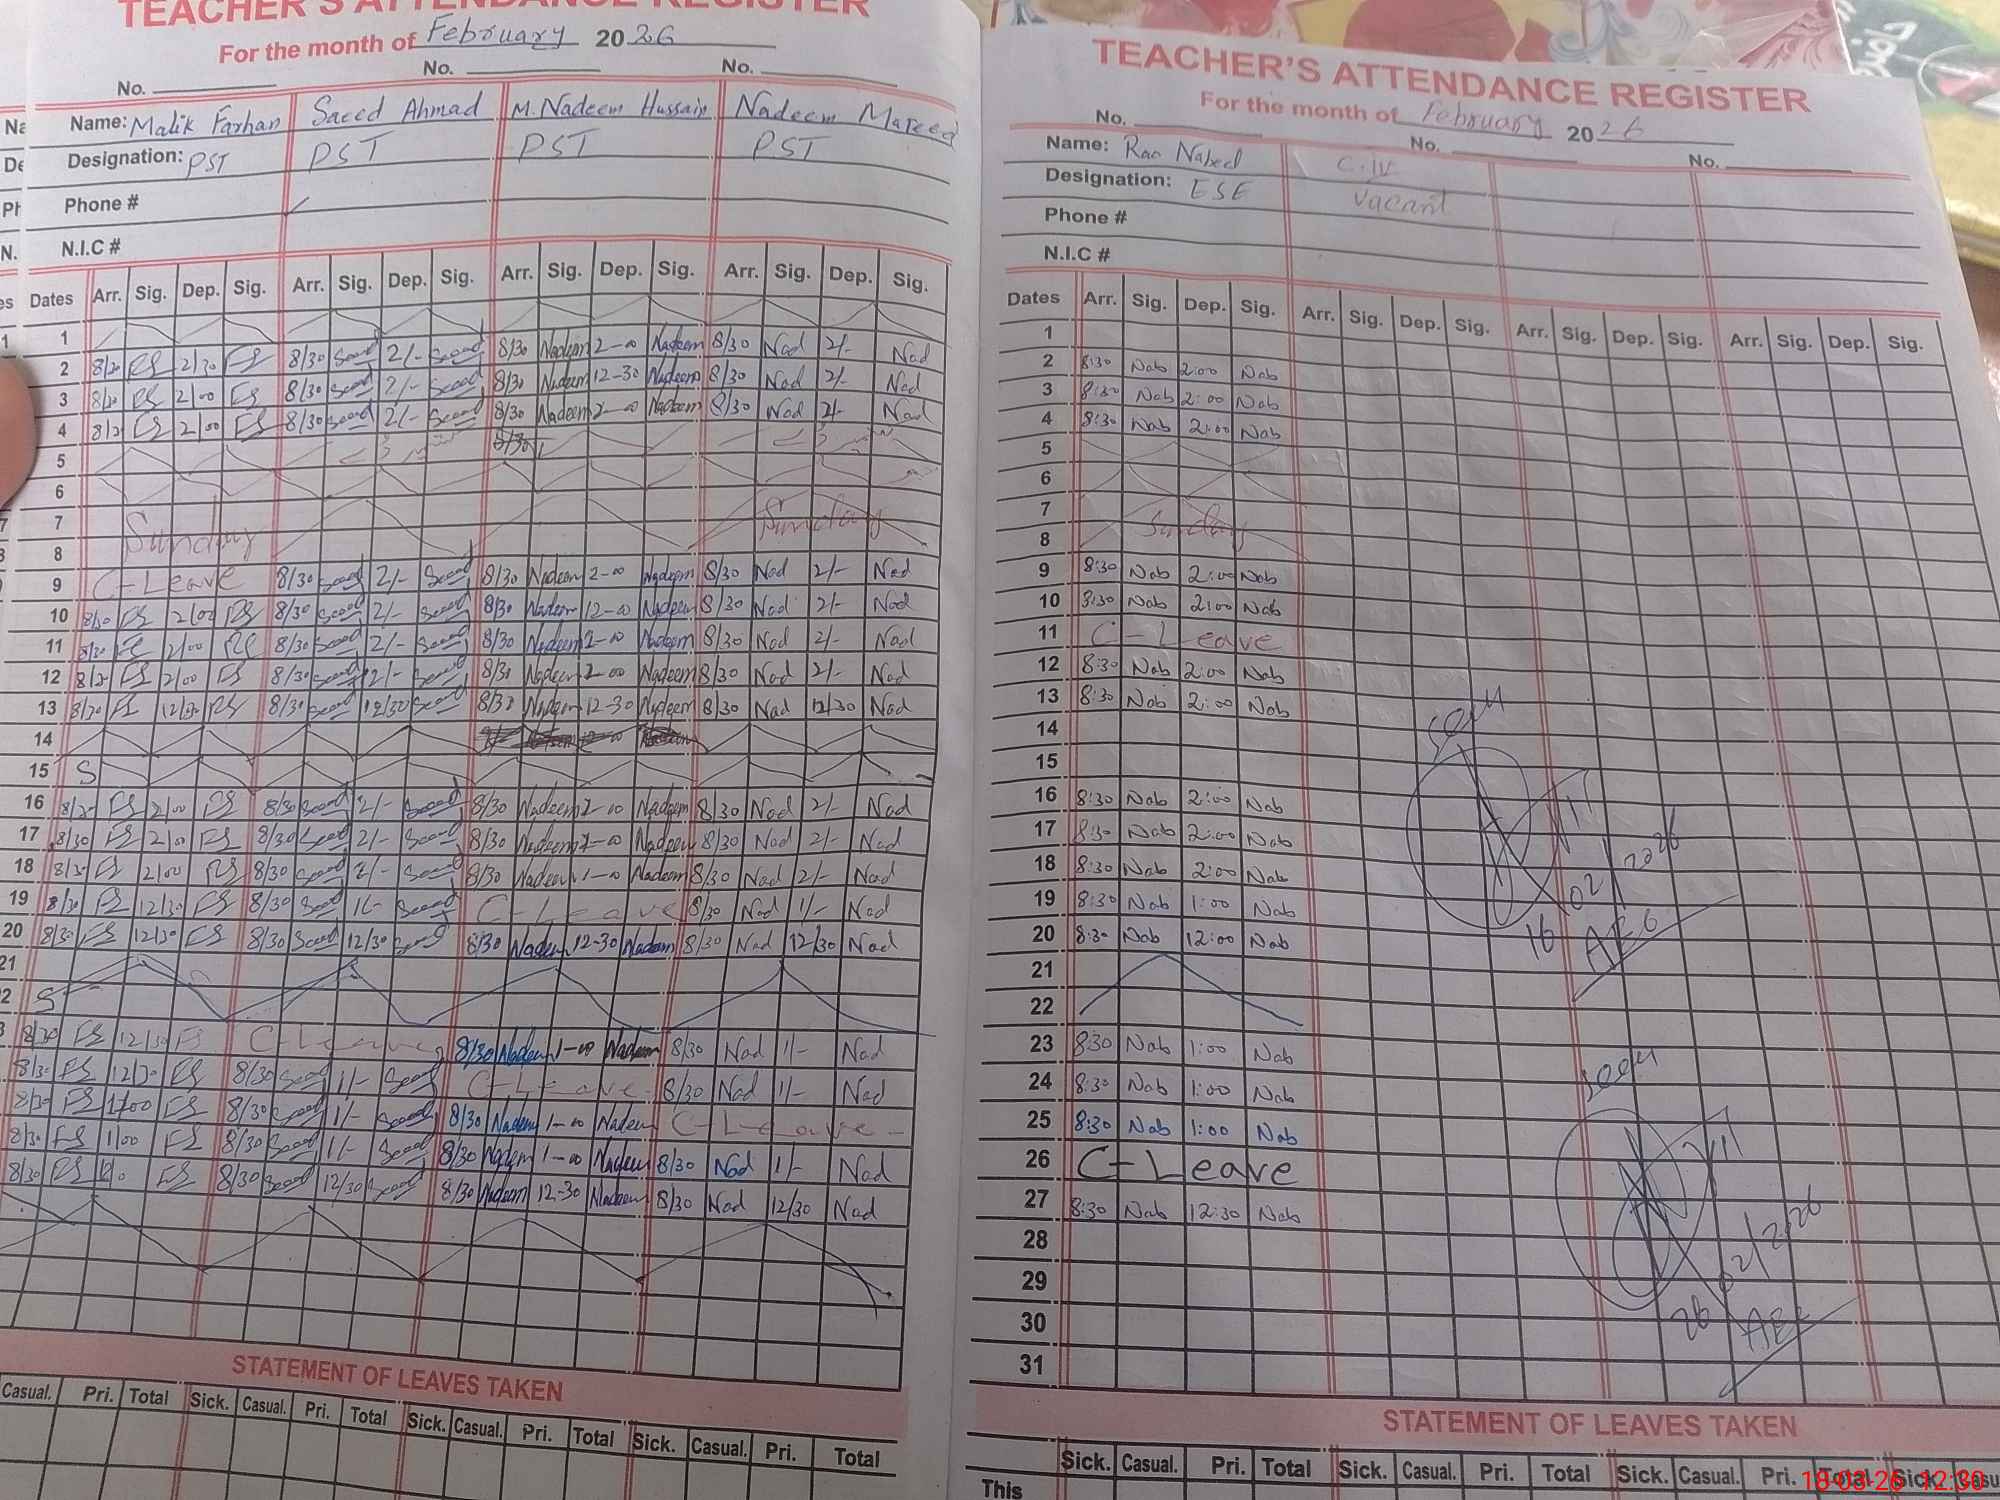 TEACHER'S ATTENDANCE REGISTER
For the month of February 2026
No. No. No.
Name: Malik Farhan Saeed Ahmad M. Nadeem Hussain Nadeem
Designation: PST PST PST PST
Phone #
N.I.C #
Dates Arr. Sig. Dep. Sig. Arr. Sig. Dep. Sig. Arr. Sig. Dep. Sig. Arr. Sig. Dep. Sig.
1
2 8/30 FS 2/30 FS 8/30 Saeed 2/- Saeed 8/30 Nadeem 2-00 Nadeem 8/30 Nad 2/- Nad
3 8/30 FS 2/00 FS 8/30 Saeed 2/- Saeed 8/30 Nadeem 12-30 Nadeem 8/30 Nad 2/- Nad
4 8/30 FS 2/00 FS 8/30 Saeed 2/- Saeed 8/30 Nadeem 2-00 Nadeem 8/30 Nad 2/- Nad
5 8/30
6
7 Sunday Sunday
8
9 C-Leave 8/30 Saeed 2/- Saeed 8/30 Nadeem 2-00 Nadeem 8/30 Nad 2/- Nad
10 8/30 FS 2/00 FS 8/30 Saeed 2/- Saeed 8/30 Nadeem 12-00 Nadeem 8/30 Nad 2/- Nad
11 8/30 FS 2/00 FS 8/30 Saeed 2/- Saeed 8/30 Nadeem 2-00 Nadeem 8/30 Nad 2/- Nad
12 8/30 FS 2/00 FS 8/30 Saeed 2/- Saeed 8/30 Nadeem 2-00 Nadeem 8/30 Nad 2/- Nad
13 8/30 FS 12/30 FS 8/30 Saeed 12/30 Saeed 8/30 Nadeem 12-30 Nadeem 8/30 Nad 12/30 Nad
14
15 S
16 8/30 FS 2/00 FS 8/30 Saeed 2/- Saeed 8/30 Nadeem 2-00 Nadeem 8/30 Nad 2/- Nad
17 8/30 FS 2/00 FS 8/30 Saeed 2/- Saeed 8/30 Nadeem 2-00 Nadeem 8/30 Nad 2/- Nad
18 8/30 FS 2/00 FS 8/30 Saeed 2/- Saeed 8/30 Nadeem 1-00 Nadeem 8/30 Nad 2/- Nad
19 8/30 FS 12/30 FS 8/30 Saeed 1/- Saeed C-Leave 8/30 Nad 1/- Nad
20 8/30 FS 12/30 FS 8/30 Saeed 12/30 Saeed 8/30 Nadeem 12-30 Nadeem 8/30 Nad 12/30 Nad
21
2 S
3 8/30 FS 12/30 FS C-Leave 8/30 Nadeem 1-00 Nadeem 8/30 Nad 1/- Nad
8/30 FS 12/30 FS 8/30 Saeed 1/- Saeed C-Leave 8/30 Nad 1/- Nad
8/30 FS 1/00 FS 8/30 Saeed 1/- Saeed 8/30 Nadeem 1-00 Nadeem C-Leave
8/30 FS 1/00 FS 8/30 Saeed 1/- Saeed 8/30 Nadeem 1-00 Nadeem 8/30 Nad 1/- Nad
8/30 FS FS 8/30 Saeed 12/30 Saeed 8/30 Nadeem 12-30 Nadeem 8/30 Nad 12/30 Nad
STATEMENT OF LEAVES TAKEN
Casual. Pri. Total Sick. Casual. Pri. Total Sick. Casual. Pri. Total Sick. Casual. Pri. Total
TEACHER'S ATTENDANCE REGISTER
For the month of February 2026
No. No. No.
Name: Rao Nabeel C.IV
Designation: ESE Vacant
Phone #
N.I.C #
Dates Arr. Sig. Dep. Sig. Arr. Sig. Dep. Sig. Arr. Sig. Dep. Sig. Arr. Sig. Dep. Sig.
1
2 8:30 Nab 2:00 Nab
3 8:30 Nab 2:00 Nab
4 8:30 Nab 2:00 Nab
5
6
7 Sunday
8
9 8:30 Nab 2:00 Nab
10 8:30 Nab 2:00 Nab
11 C-Leave
12 8:30 Nab 2:00 Nab
13 8:30 Nab 2:00 Nab
14 Seen
15
16 8:30 Nab 2:00 Nab
17 8:30 Nab 2:00 Nab
18 8:30 Nab 2:00 Nab
19 8:30 Nab 1:00 Nab
20 8:30 Nab 12:00 Nab
16/02/2026
AEO
21
22
23 8:30 Nab 1:00 Nab
24 8:30 Nab 1:00 Nab
Seen
25 8:30 Nab 1:00 Nab
26 C-Leave
27 8:30 Nab 12:30 Nab
28
29
26/02/2026
30 AEO
31
STATEMENT OF LEAVES TAKEN
Sick. Casual. Pri. Total Sick. Casual. Pri. Total Sick. Casual. Pri. Total Sick. Casu
This
18-03-26 12:30